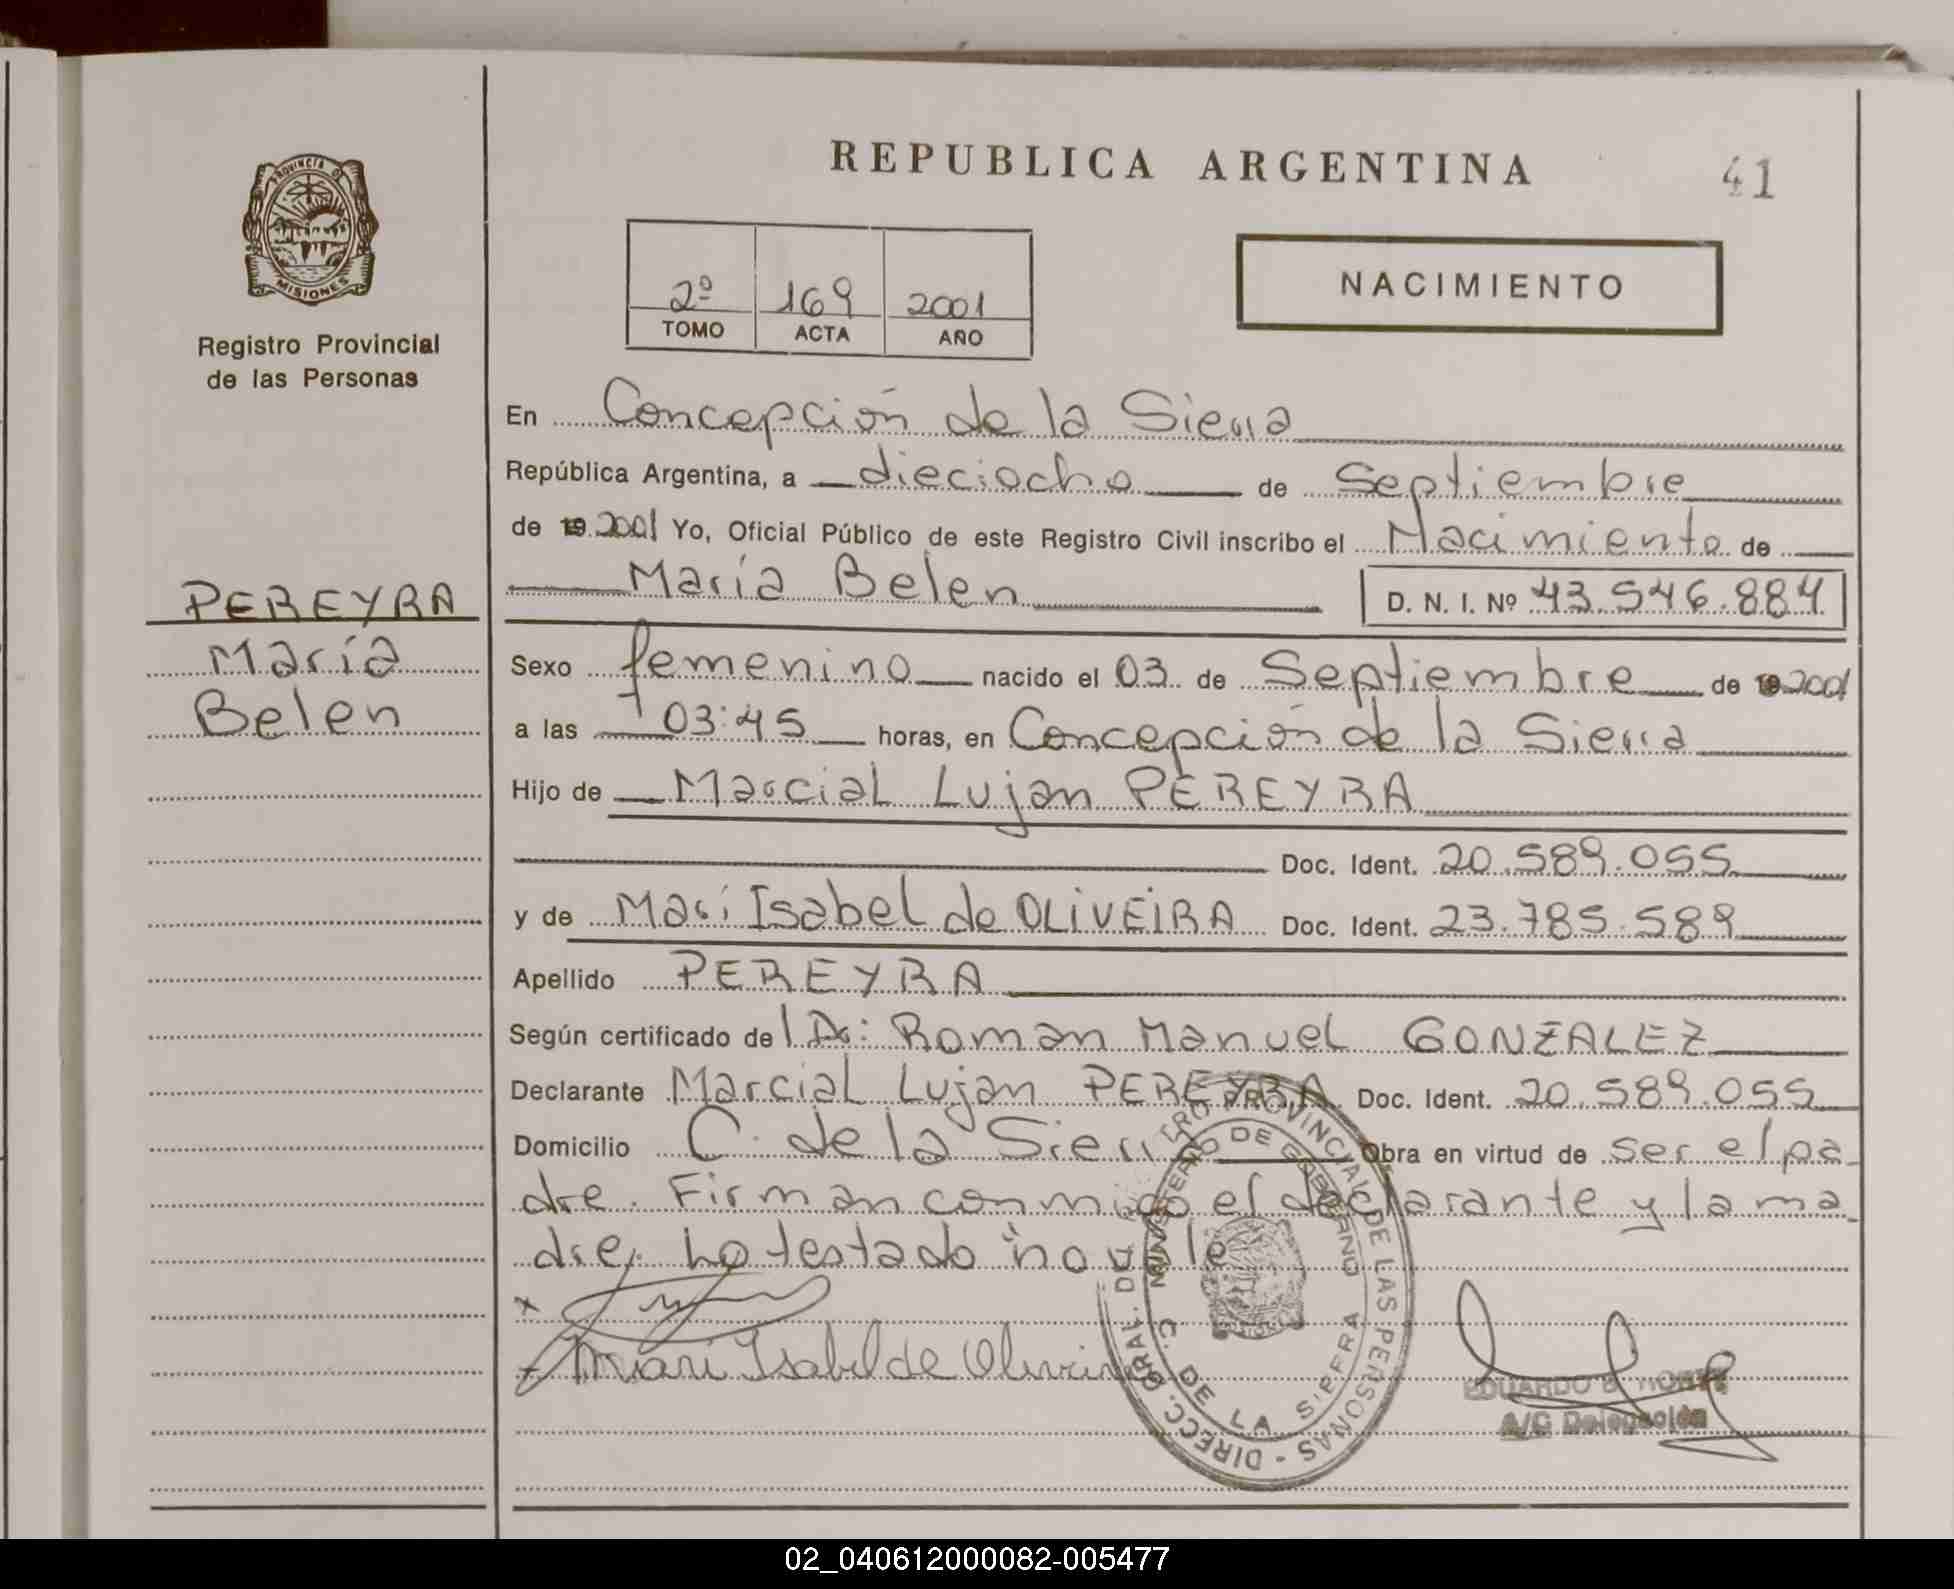 REPUBLICA ARGENTINA
41
PROVINCIA DE
MISIONES
Registro Provincial
de las Personas
2º 169 2001
TOMO ACTA AÑO
NACIMIENTO
En Concepción de la Sierra
República Argentina, a dieciocho de Septiembre
de 19 2001 Yo, Oficial Público de este Registro Civil inscribo el Nacimiento de
María Belen D. N. I. Nº 43.546.884
PEREYRA
María
Belen
Sexo femenino nacido el 03 de Septiembre de 19 2001
a las 03:45 horas, en Concepción de la Sierra
Hijo de Marcial Lujan PEREYRA
Doc. Ident. 20.589.055
y de Mari Isabel de OLIVEIRA Doc. Ident. 23.785.589
Apellido PEREYRA
Según certificado del Dr: Roman Manuel GONZALEZ
Declarante Marcial Lujan PEREYRA Doc. Ident. 20.589.055
Domicilio C. de la Sierra Obra en virtud de ser el pa-
dre. Firman conmigo el declarante y la ma-
dre, lo testado no vale
x
Mari Isabel de Oliveira
DIRECC. GRAL. DEL REGISTRO PROVINCIAL DE LAS PERSONAS -
MINISTERIO DE GOBIERNO
C. DE LA SIERRA
EDUARDO
A/C Delegación
02_040612000082-005477